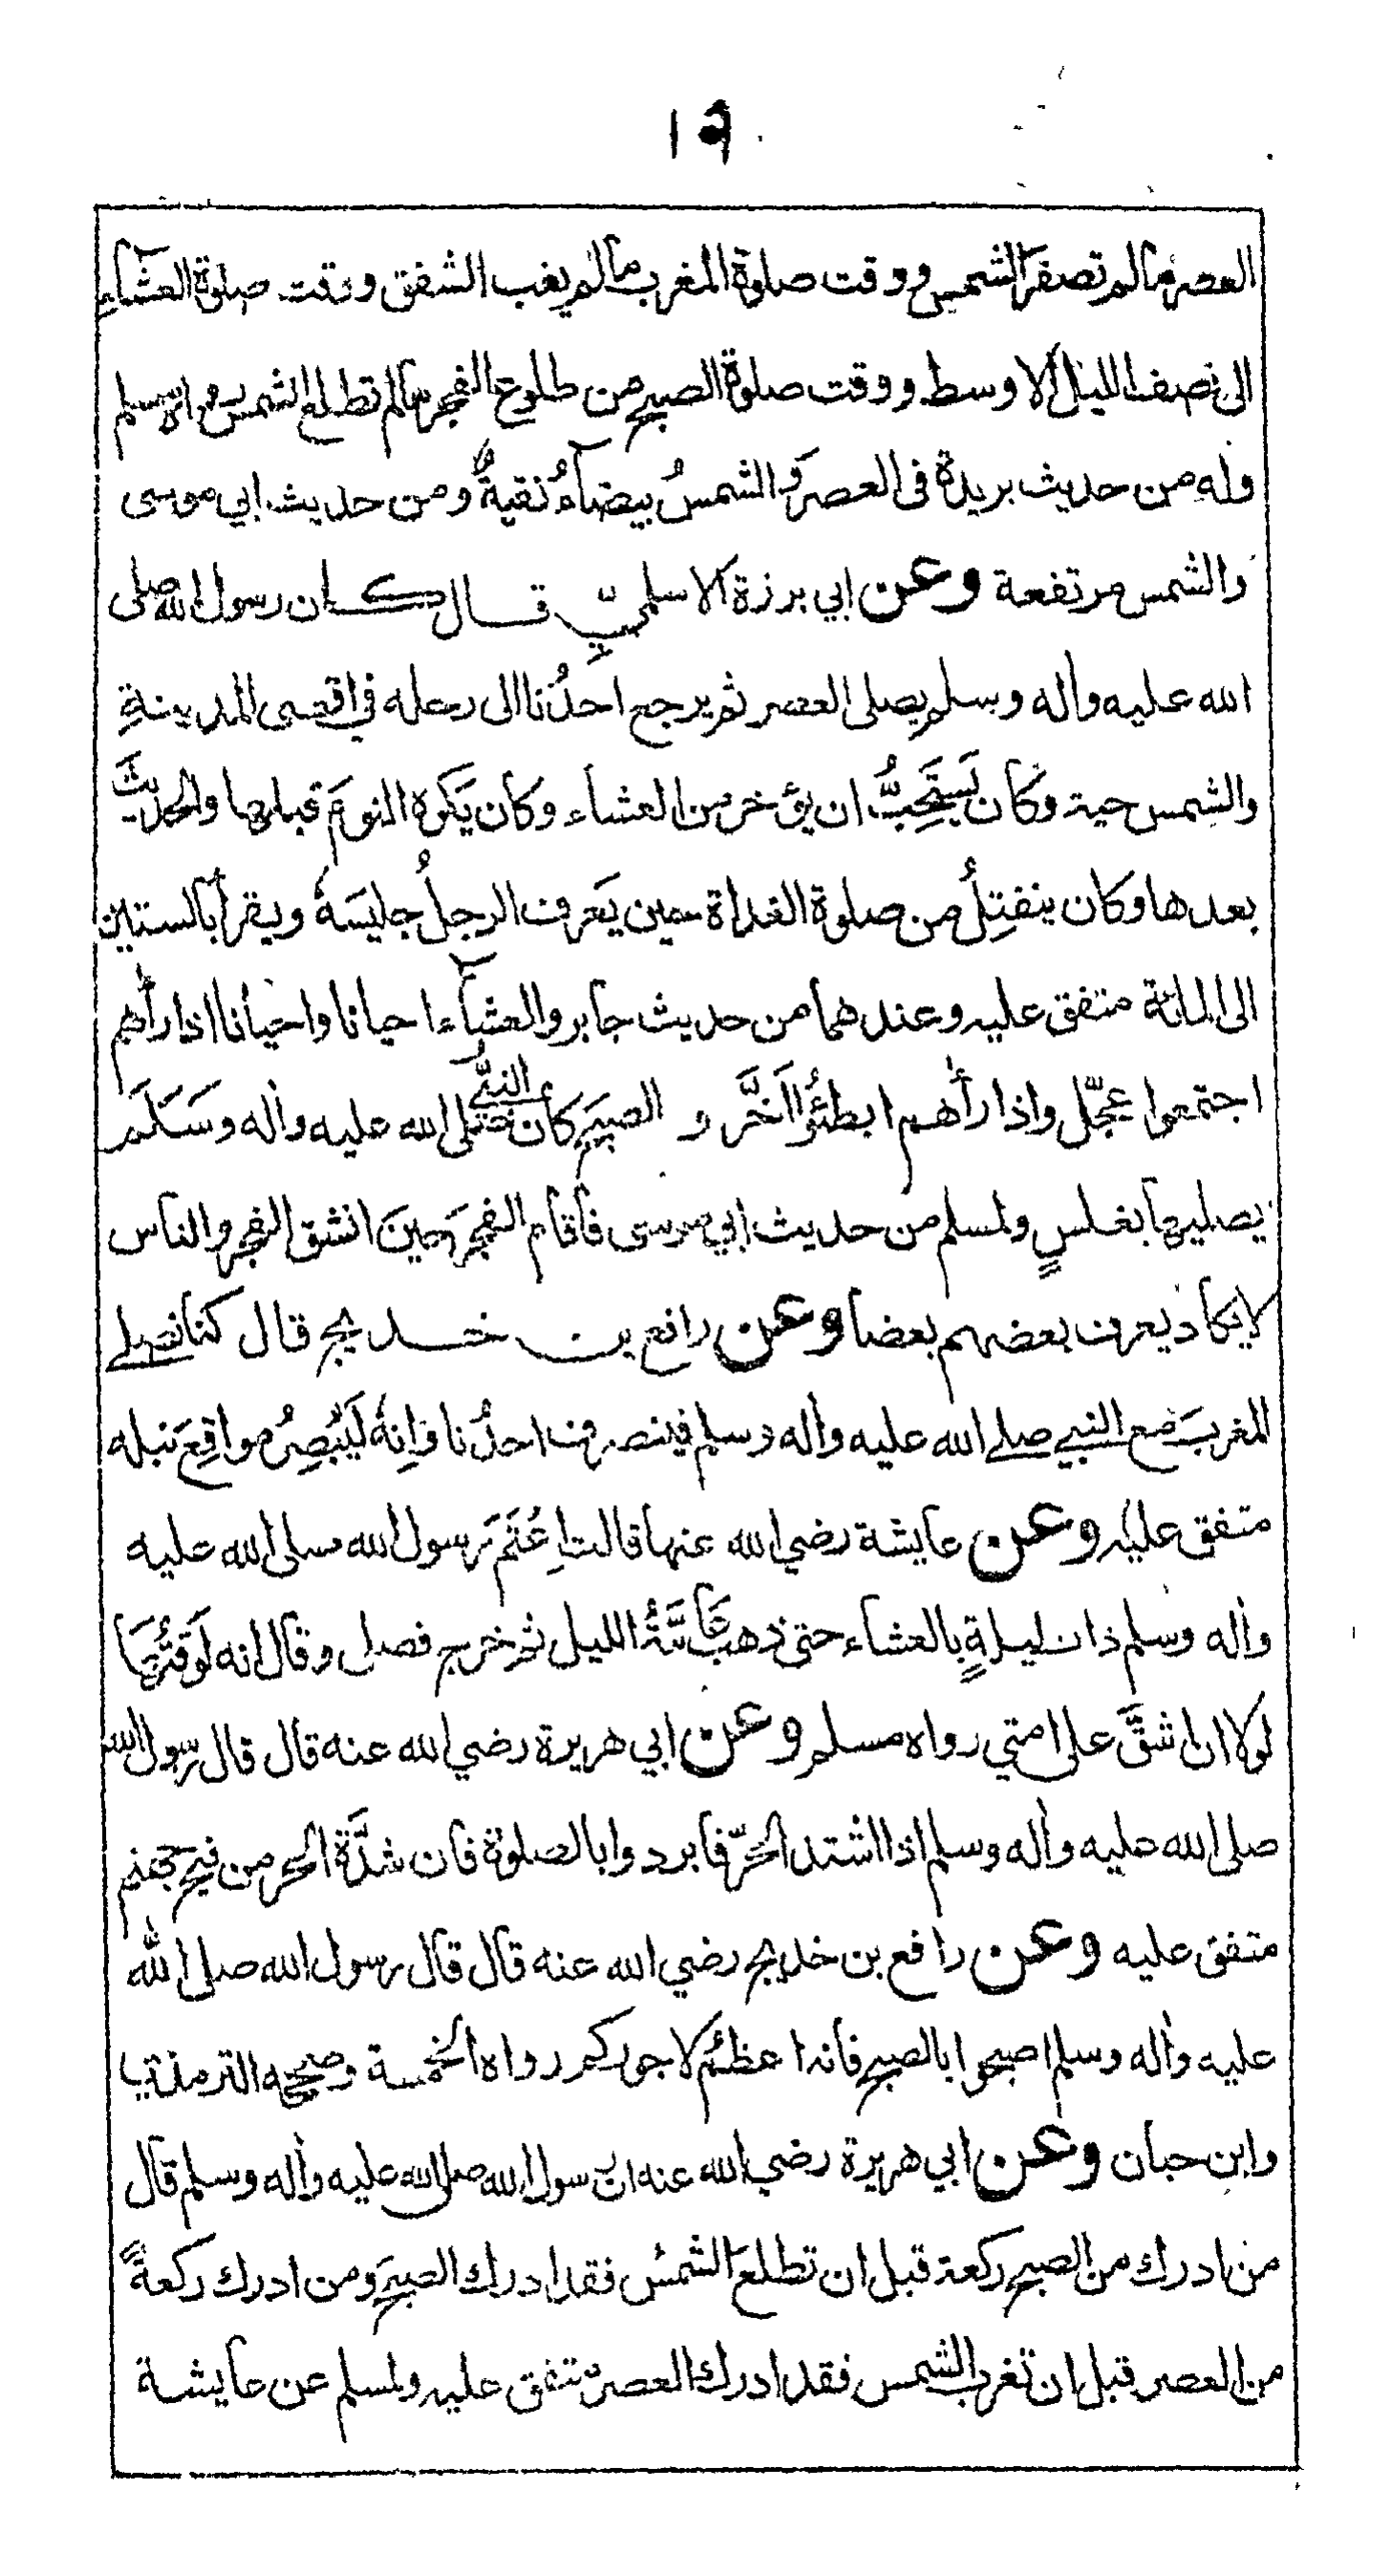 ١٩
العصر مالم تصفر الشمس ووقت صلوة المغرب مالم يغب الشفق ووقت صلوة العشآء
الى نصف الليل الاوسط ووقت صلوة الصبح من طلوع الفجر مالم تطلع الشمس رواه مسلم
وله من حديث بريدة فى العصر والشمسُ بيضآءُ نقيةٌ ومن حديث ابي موسى
والشمس مرتفعة وعن ابي برزة الاسلميّ قال كان رسول الله صلى
الله عليه واله وسلم يصلى العصر ثم يرجع احدُنا الى رحله في اقصى المدينةِ
والشمس حية وكان يَستَحِبُّ ان يؤخر من العشاء وكان يَكره النومَ قبلها والحديثَ
بعدها وكان ينفتِلُ من صلوة الغداة حين يَعرف الرجلُ جليسَهُ ويقرأ بالستين
الى المائة متفق عليه وعندهما من حديث جابر والعشآء احيانا واحيانا اذا رأهم
اجتمعوا عجّل واذا رأهم ابطئُوا اَخَّر و الصبحَ كان النبيُّ صلى الله عليه واله وسَلَمَ
يصليها بغلسٍ ولمسلم من حديث ابي موسى فأقام الفجرَ حينَ انشق الفجر والناس
لايكاد يعرف بعضهم بعضا وعن رافع بن خديج قال كنا نصلے
المغربَ مع النبي صلے الله عليه واله وسلم فينصرف احدُنا وَاِنهُ لَيُبْصِرُ مواقِعَ نبله
متفق عليه وعن عايشة رضي الله عنها قالت اِعْتَم رسول الله صلى الله عليه
واله وسلم ذات ليلةٍ بالعشاء حتى ذهب عَامَّةُ الليل ثم خرج فصلى وقال انه لَوَقتُهَا
لولا ان اشقَّ على امتي رواه مسلم وعن ابي هريرة رضي الله عنه قال قال رسول الله
صلى الله عليه واله وسلم اذا اشتد الحرّ فابردوا بالصلوة فان شدَّة الحر من فيح جهنم
متفق عليه وعن رافع بن خديج رضي الله عنه قال قال رسول الله صلى الله
عليه واله وسلم اصبحوا بالصبح فانه اعظمُ لاجوركم رواه الخمسة وصححه الترمذي
وابن حبان وعن ابي هريرة رضي الله عنه ان رسول الله صلى الله عليه واله وسلم قال
من ادرك من الصبح ركعة قبل ان تطلعَ الشمسُ فقد ادرك الصبحَ ومن ادرك ركعةً
من العصر قبل ان تغرب الشمس فقد ادرك العصر متفق عليه ولمسلم عن عايشة